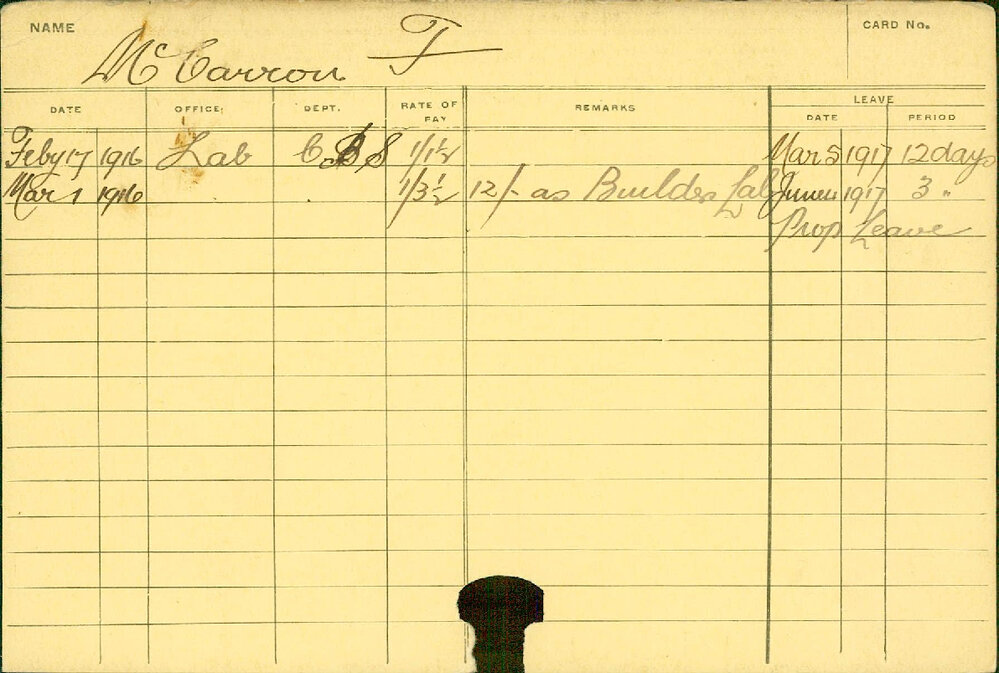 NAME McCarron F CARD No.
DATE OFFICE: DEPT. RATE OF PAY REMARKS LEAVE
DATE PERIOD
Feby 17 1916 Lab C B S 1/1½ Mar 5 1917 12 days
Mar 1 1916 1/3½ 12/- as Builders Lab June 1917 3 "
Prop Leave